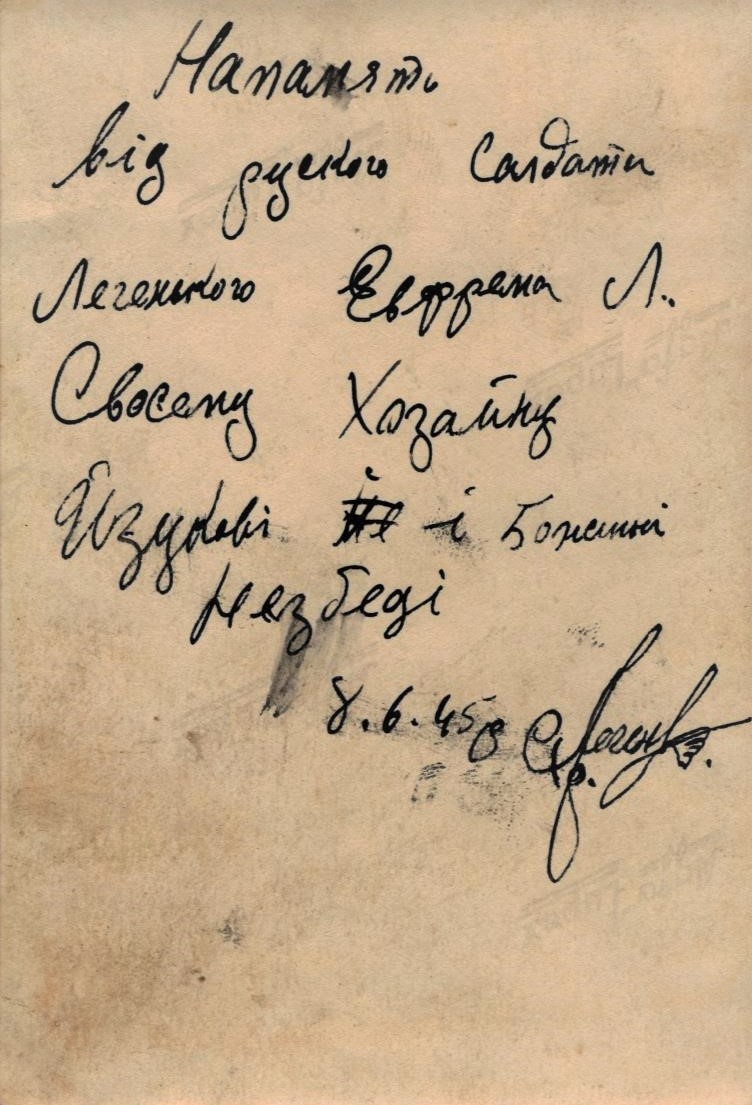 Напамять
від руского солдата
Легенького Евфрема Л.
Своєму Хозайну
Йзукові і Божанні
Незбеді
8.6.45г Єфр. Легень